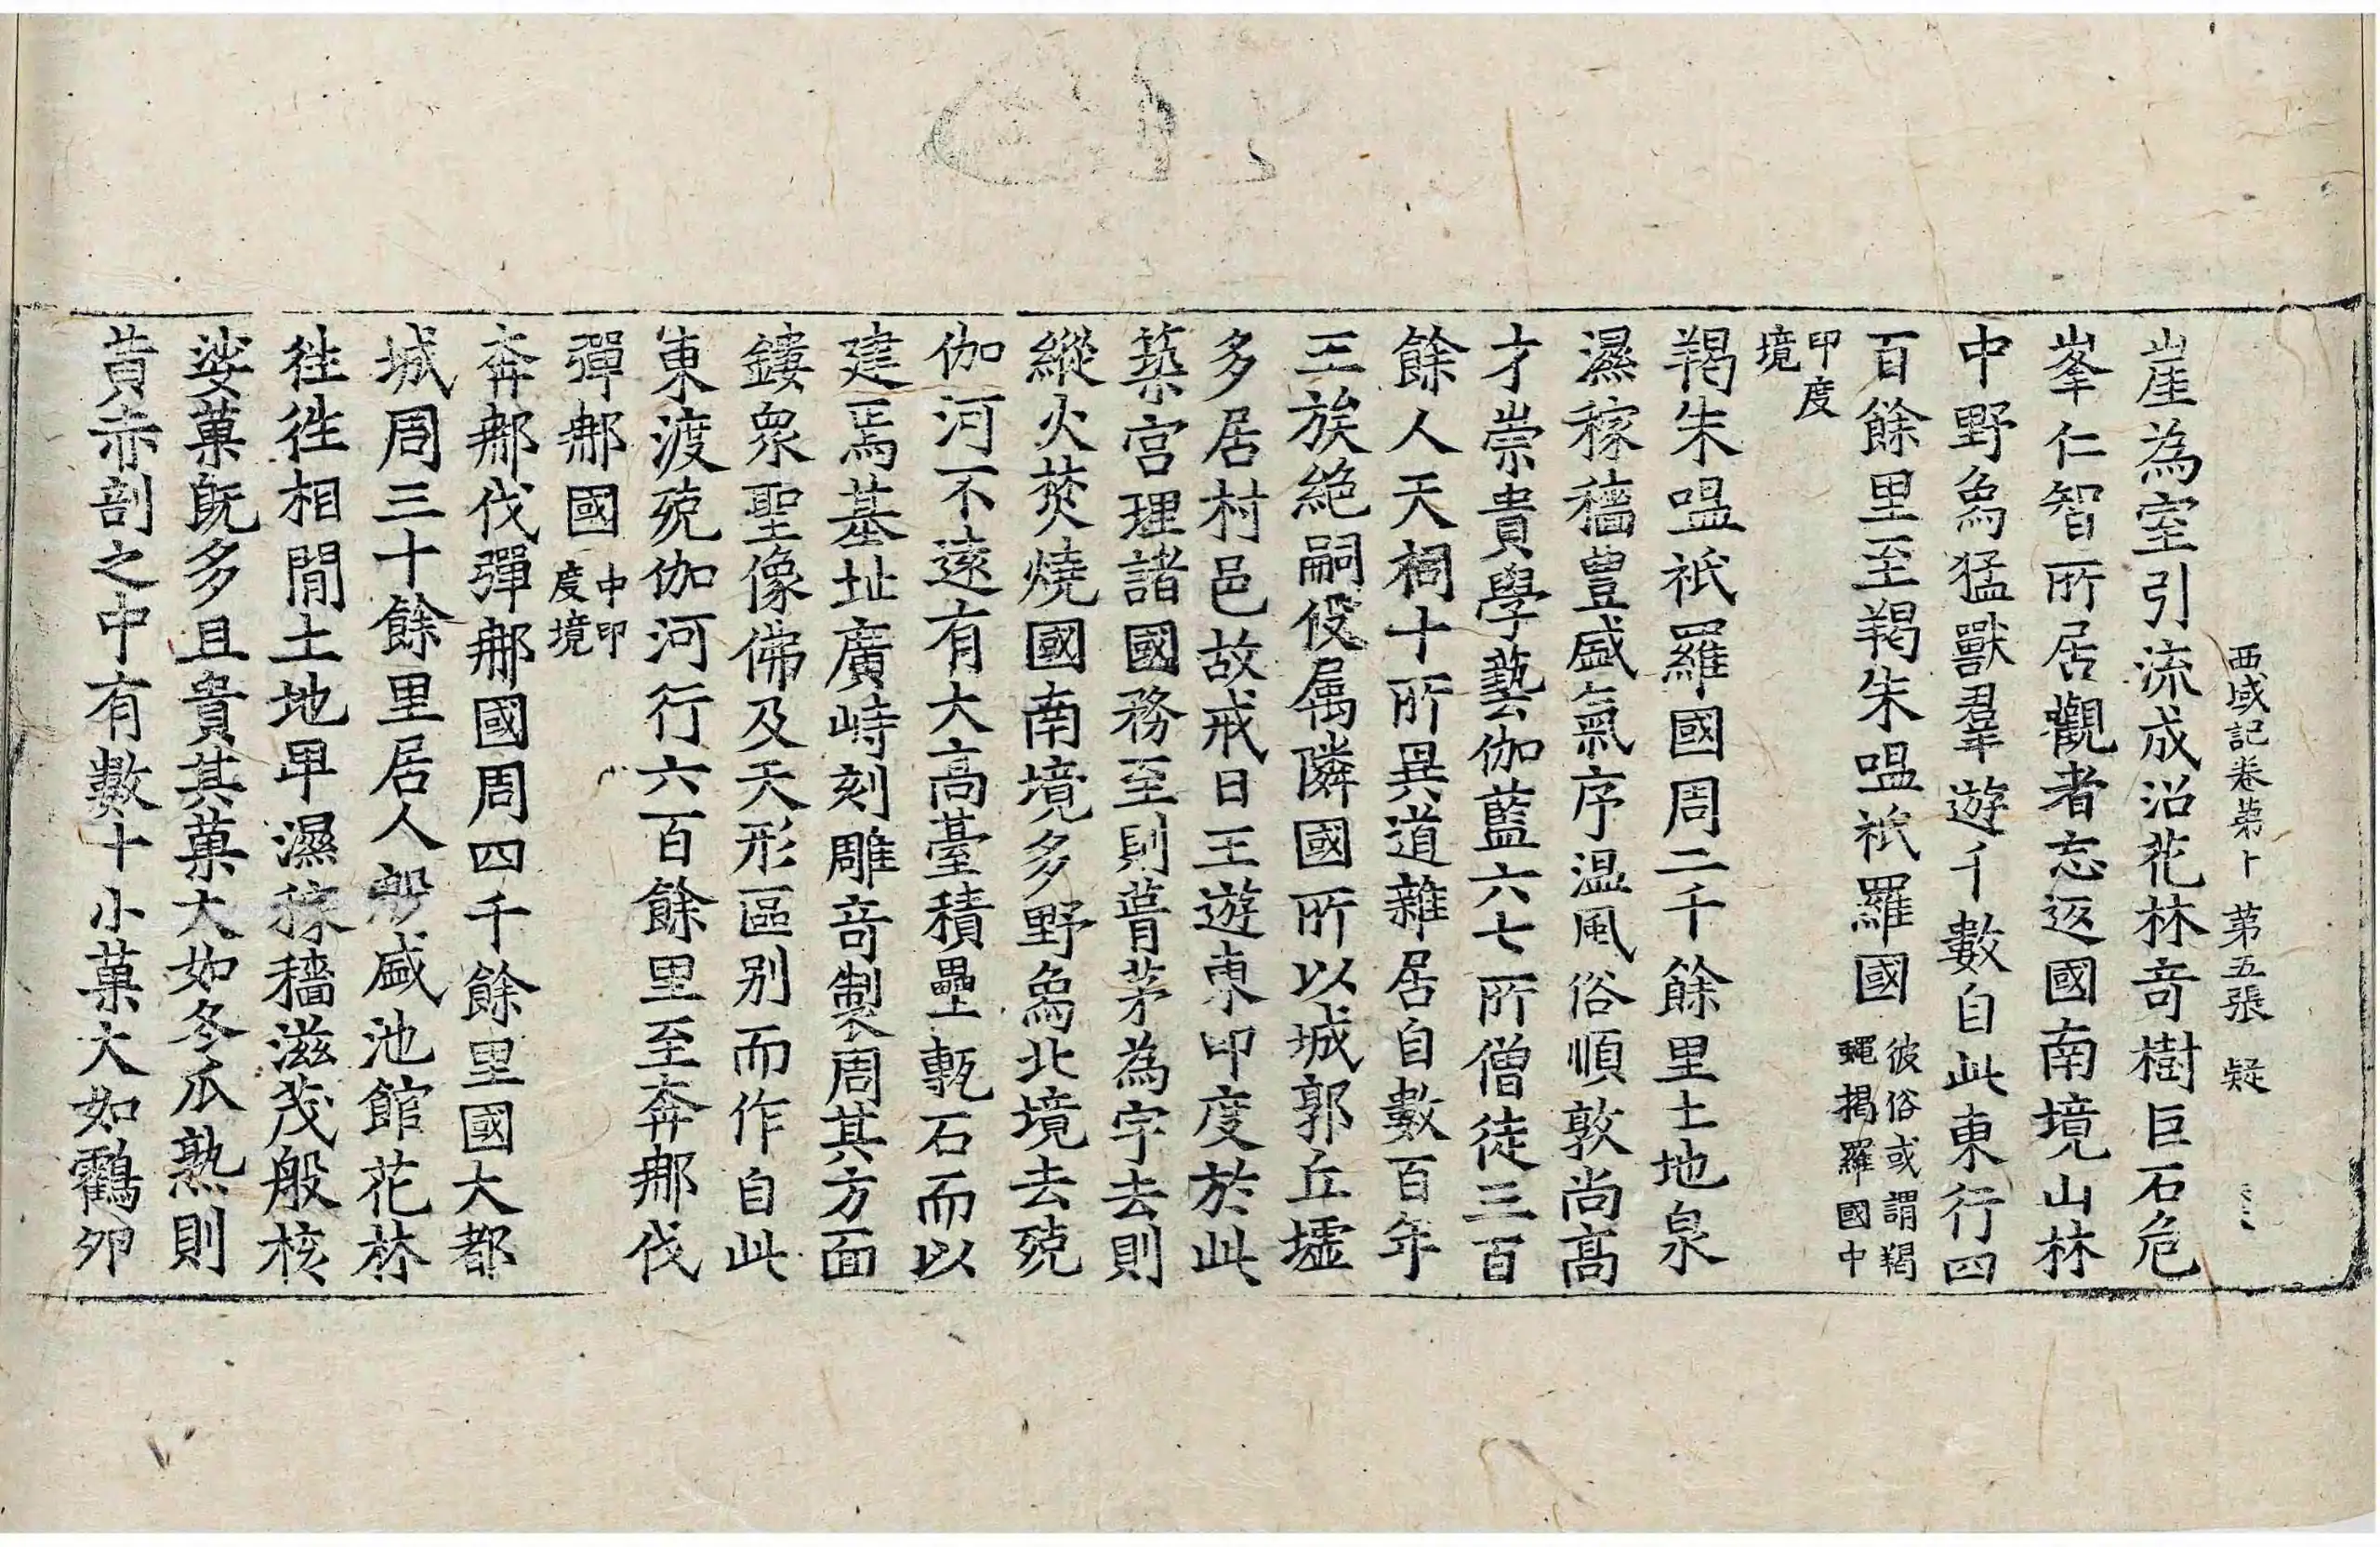 西域記卷苐十 第五張 疑
崖為室引流成沼花林竒樹巨石危
峯仁智所居觀者忘返國南境山林
中野象猛獸羣遊千數自此東行四
百餘里至羯朱嗢祇羅國彼俗或謂羯
蠅揭羅國中
印度
境
羯朱嗢祇羅國周二千餘里土地泉
濕稼穡豊盛氣序温風俗順敦尚髙
才崇貴學藝伽藍六七所僧徒三百
餘人天祠十所異道雜居自數百年
王族絶嗣役属隣國所以城郭丘墟
多居村邑故戒日王遊東印度於此
築宫理諸國務至則葺茅為宇去則
縱火焚燒國南境多野象北境去殑
伽河不遠有大髙臺積壘甎石而以
建焉基址廣峙刻雕竒製周其方面
鏤衆聖像佛及天形區别而作自此
東渡殑伽河行六百餘里至奔那伐
彈那國中印
度境
奔那伐彈那國周四千餘里國大都
城周三十餘里居人殷盛池館花林
徃徃相閒土地卑濕稼穡滋茂般核
娑菓既多且貴其菓大如冬瓜熟則
黄赤剖之中有數十小菓大如鸖卵